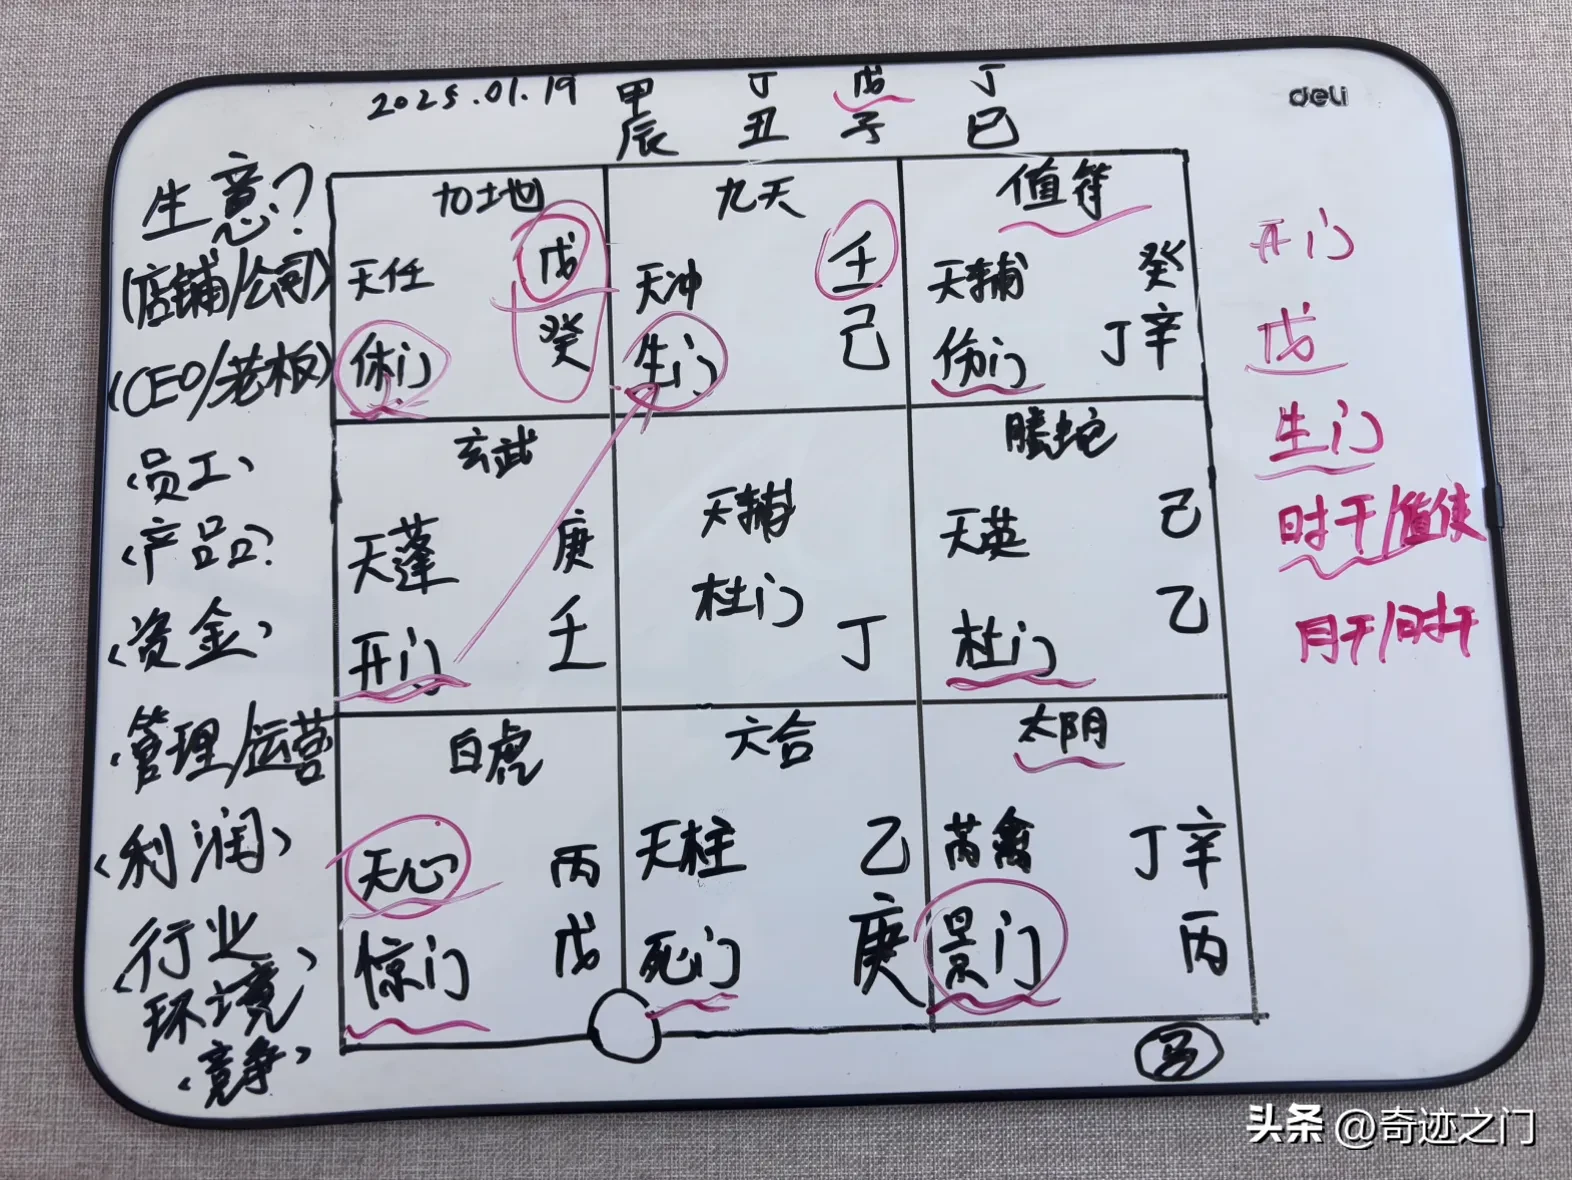 2025.01.19 甲 丁 戊 丁
辰 丑 子 巳
deli
生意?
(店铺/公司)
(CEO/老板)
<员工>
<产品?
<资金>
<管理/运营
<利润>
<行业
环境>
<竞争>
九地
天任 戊
休门 癸
九天
天冲 壬
生门 己
值符
天辅 癸
伤门 丁辛
玄武
天蓬 庚
开门 壬
天辅
杜门 丁
腾蛇
天英 己
杜门 乙
白虎
天心 丙
惊门 戊
六合
天柱 乙
死门 庚
太阴
芮禽 丁辛
景门 丙
马
开门
戊
生门
时干/值使
月干/时干
头条 @奇迹之门